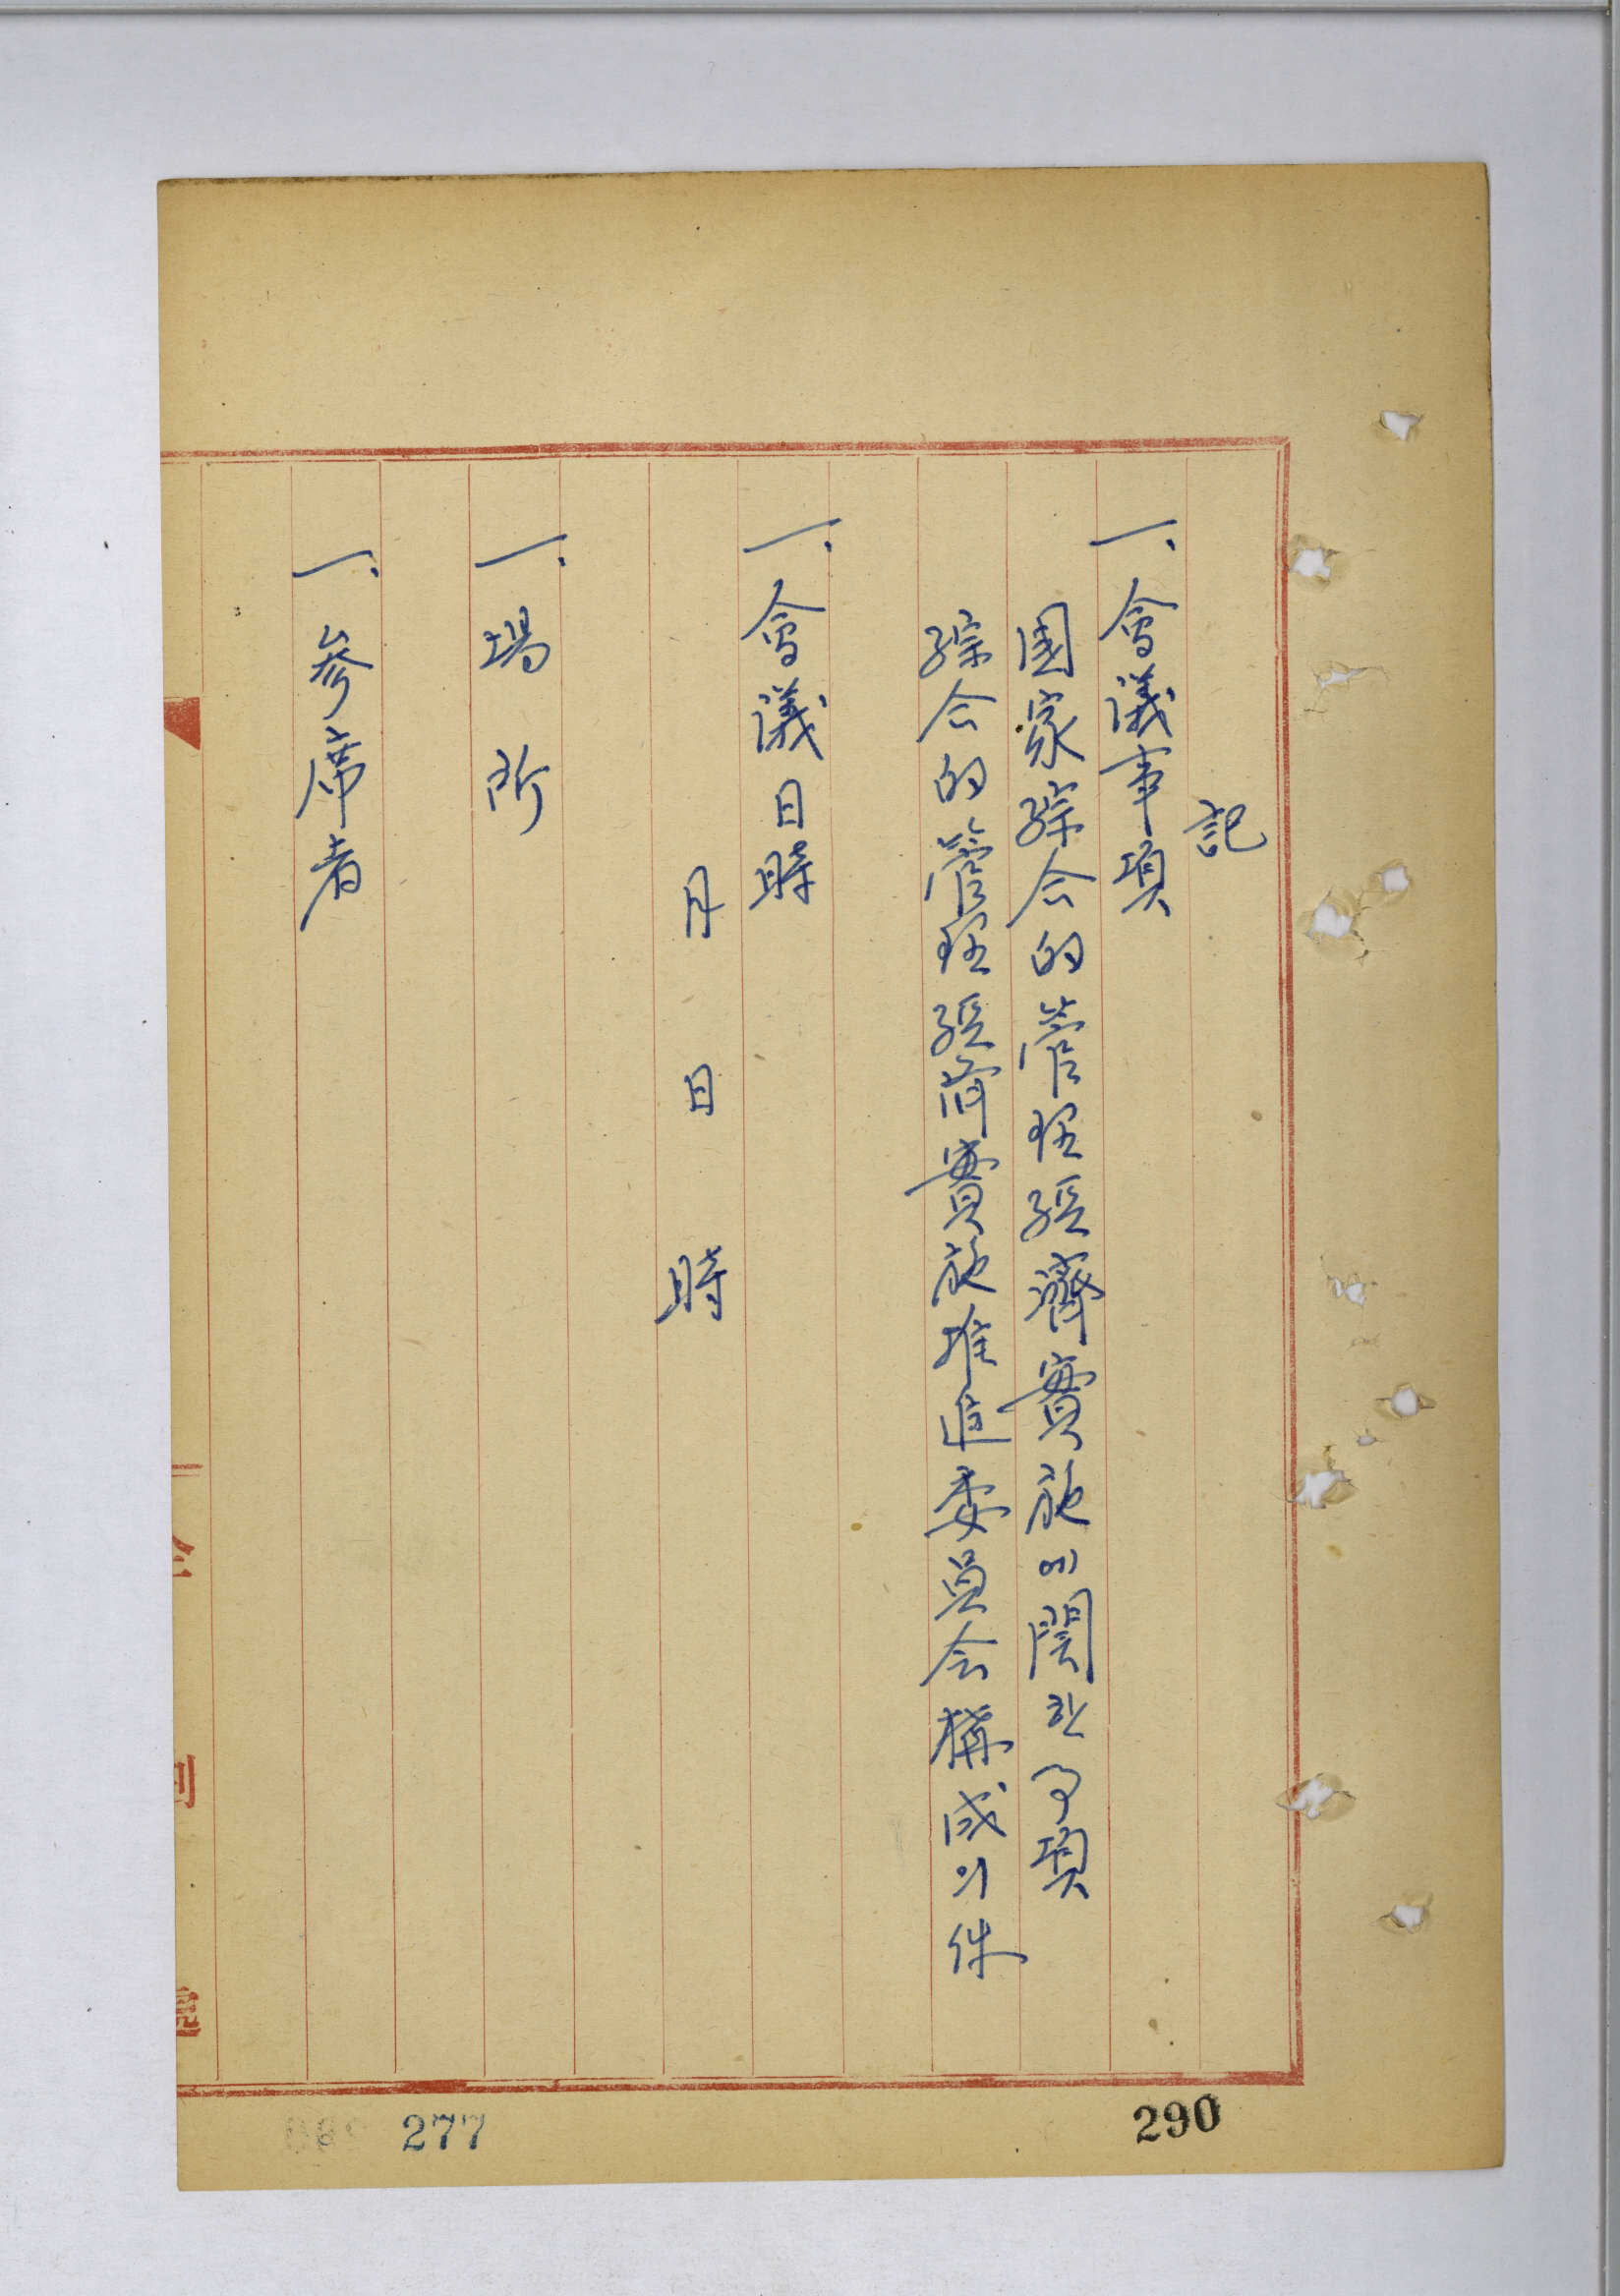 記
一、會議事項
國家綜合的管理經濟實施에關한事項
綜合的管理經濟實施準備委員会構成의件
一、會議日時
月 日 時
一、場所
一、參席者
290
277